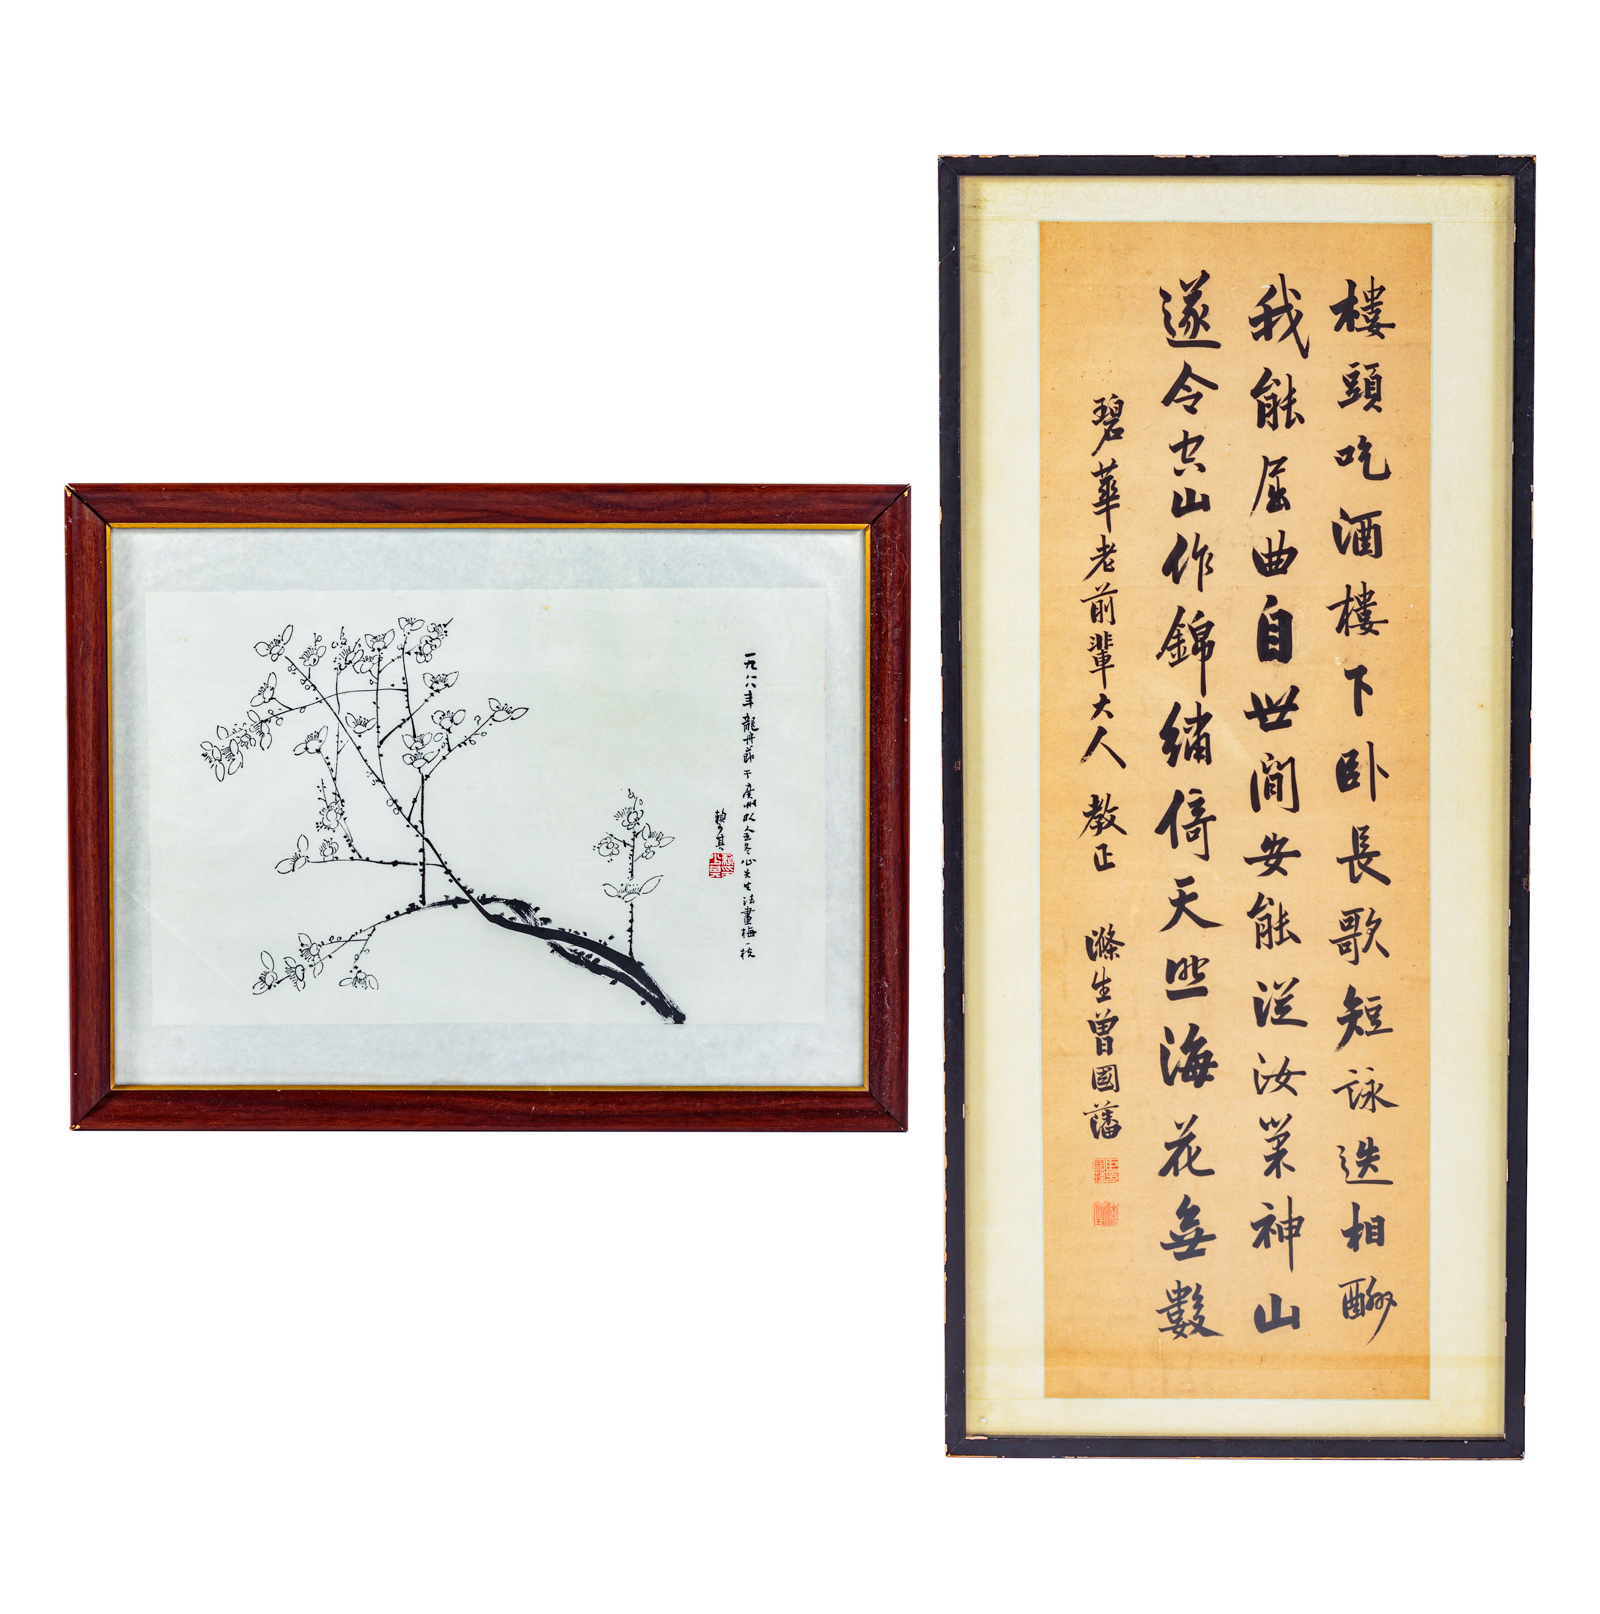 一九八八年龍舟節于廣州以金冬心先生法畫梅一枝
賴少其
樓頭吃酒樓下卧長歌短詠迭相酬
我能屈曲自世間安能從汝巢神山
遂令空山作錦繡倚天照海花無數
碧華老前輩大人教正
滌生曾國藩